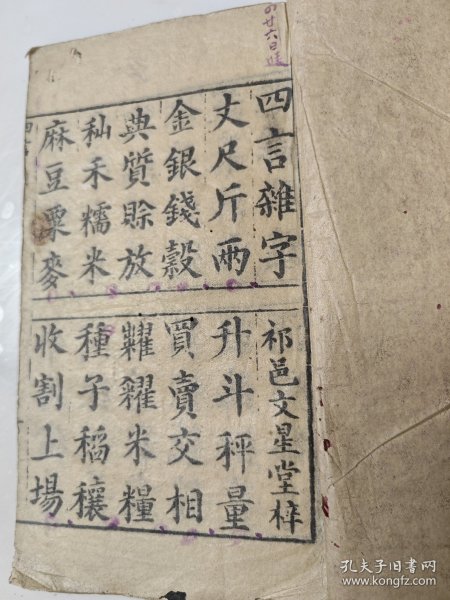 四言雜字
祁邑文星堂梓
丈尺斤兩
升斗秤量
金銀錢穀
買賣交相
典質賒放
糶糴米糧
秈禾糯米
種子稻穰
麻豆粟麥
收割上場
廿六日
孔夫子旧书网
www.kongfz.com